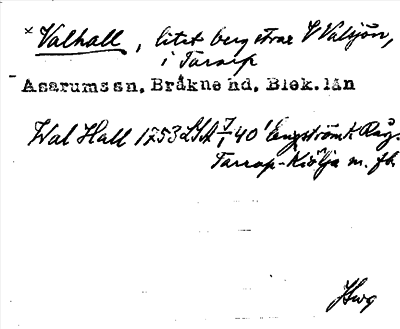 × Valhall, litet berg strax V Valsjön,
i Tararp
Asarums sn. Bråkne hd, Blek. län
Wal Hall 1753 LSA 7/1 40' Engström k Råg.
Tarrap-Kiölja m. fl.
Hwg